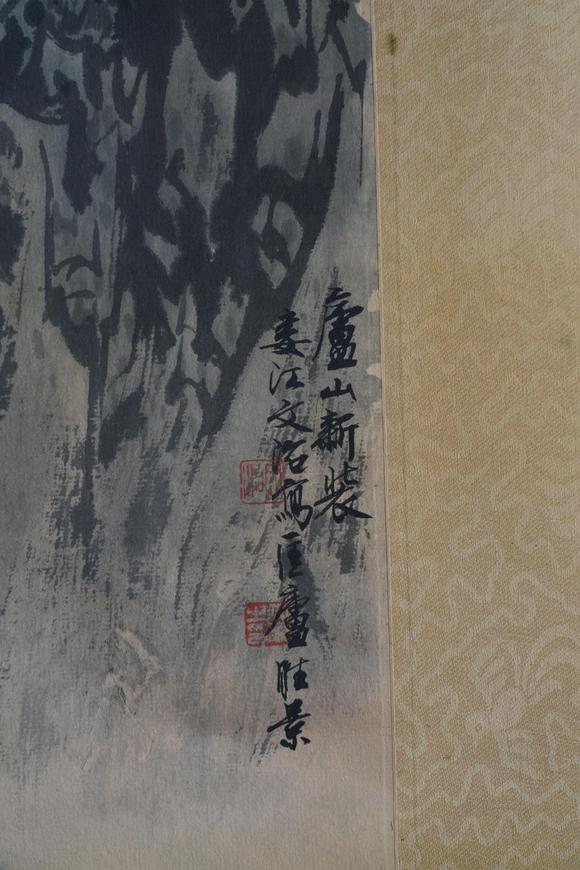 廬山新裝
婁江文治寫匡廬胜景